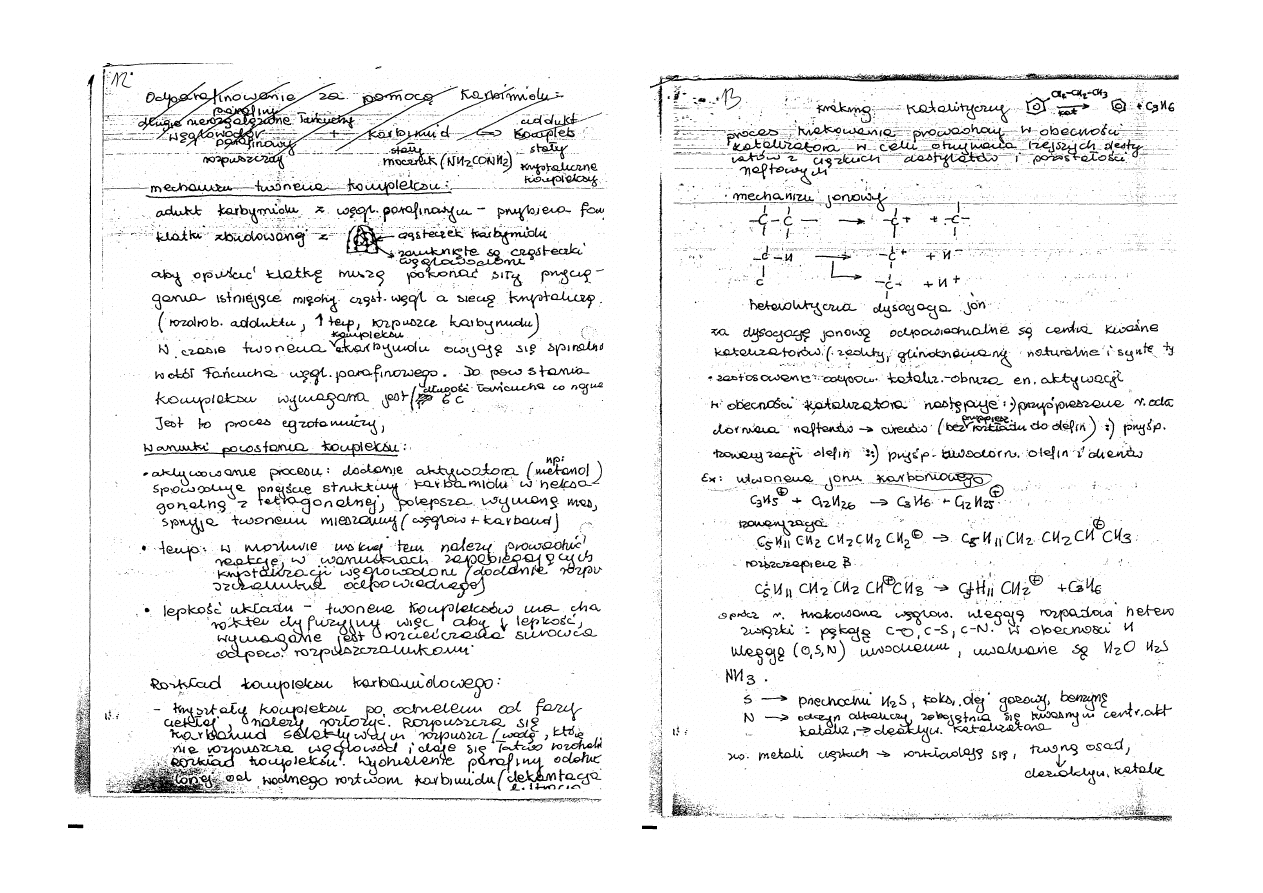 12.
Odparafinowanie za pomocą karbimidu:
parafiny
długie nierozgałęzione łańcuchy addukt
węglowodór + karbymid ⇔ kompleks
parafinowy stały stały
rozpuszczony mocznik (NH2CONH2) krystaliczne
kompleksy
mechanizm tworzenia kompleksu:
addukt karbymidu z węgl. parafinowym - przybiera
klatki zbudowanej z cząsteczek karbymidu
zamknięte są cząsteczki
węglowodoru
aby opuścić klatkę muszą pokonać siły przycią-
gania istniejące między cząst. węgl a siecią krystaliczą.
(rozdrob. adduktu, ↑ temp, rozpuszcz karbymidu)
kompleksu
W czasie tworzenia karbymidu owijają się spiralnie
wokół łańcucha węgl. parafinowego. Do powstania
kompleksu wymagana jest (długość łańcucha co najmn
6 C
Jest to proces egzotermiczny,
Warunki powstania kompleksu:
• aktywowanie procesu: dodanie aktywatora (np: metanol)
spowoduje przejście struktury karbamidu w heksa-
gonalną z tetragonalnej, polepsza wymianę mas,
sprzyja tworzeniu mieszaniny (węglow + karbamid)
• temp: w możliwie niskiej tem należy prowadzić
reakcję, w warunkach zapobiegających
krystalizacji węglowodoru (dodanie rozpu
szczalnika odpowiedniego)
• lepkość układu - tworzenie kompleksów ma cha
rakter dyfuzyjny więc aby ↓ lepkość,
wymagane jest rozcieńczania surowca
odpow. rozpuszczalnikami
Rozkład kompleksu karbamidowego:
- kryształy kompleksu po oddzieleniu od fazy
ciekłej, należy rozłożyć. Rozpuszcza się
karbamid selektywnym rozpuszcz (wodą, która
nie rozpuszcza węglowod i daje się łatwo rozdzielić
rozkład kompleksu. Wydzielenie parafiny
od wodnego roztworu karbimidu (dekantacja
13
kraking katalityczny CH2-CH2-CH3 → kat + C3H6
proces krakowania prowadzony w obecności
katalizatora w celu otrzymania lżejszych desty
latów z ciężkich destylatów i pozostałości
naftowych
• mechanizm jonowy
-C-C- → -C+ + -C-
-C-H → -C+ + H-
C → -C- + H+
heterolityczna dysocjacja jon
za dysocjację jonową odpowiedzialne są centra kwaśne
katalizatorów (zeolity, glinokrzemiany naturalne i synte ty
• zastosowanie odpow. kataliz. - obniża en. aktywacji
w obecności katalizatora następuje: ·) przyśpieszenie r. odwo
dornienia naftenów → arenów (bez rozkładu do olefin) :) przyśp.
izomeryzacji olefin ∴) przyśp. uwodorn. olefin i dienów
Ex: utworzenie jonu karboniowego
C3H5⊕ + C12H26 → C3H6 + C12H25⊕
izomeryzacja
C5H11 CH2 CH2 CH2 CH2⊕ → C5H11 CH2 CH2 CH⊕ CH3
rozszczepienie β
C5H11 CH2 CH2 CH⊕ CH3 → C5H11 CH2⊕ + C3H6
oprócz r. krakowania węglow. ulegają rozpadowi hetero
związki: pękają C-O, C-S, C-N. w obecności H
ulegają (O,S,N) uwodornieniu, uwalniane są H2O H2S
NH3.
S → przechodzi H2S, koks, olej gazowy, benzynę
N → odczyn alkaliczny zobojętnia się kwasnymi centr. akt
kataliz, → deaktyw. katalizatora
zw. metali ciężkich → rozkładają się, tworzą osad,
↓
dezaktyw. kataliz